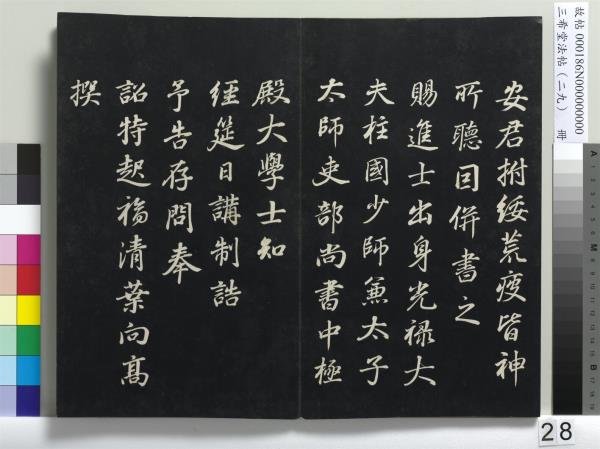 安君拊綏荒瘦皆神
所聽因併書之
賜進士出身光祿大
夫柱國少師兼太子
太師吏部尚書中極
殿大學士知
經筵日講制誥
予告存問奉
詔特起福清葉向高
撰
故帖 000186N000000000
三希堂法帖(二九) 冊
28